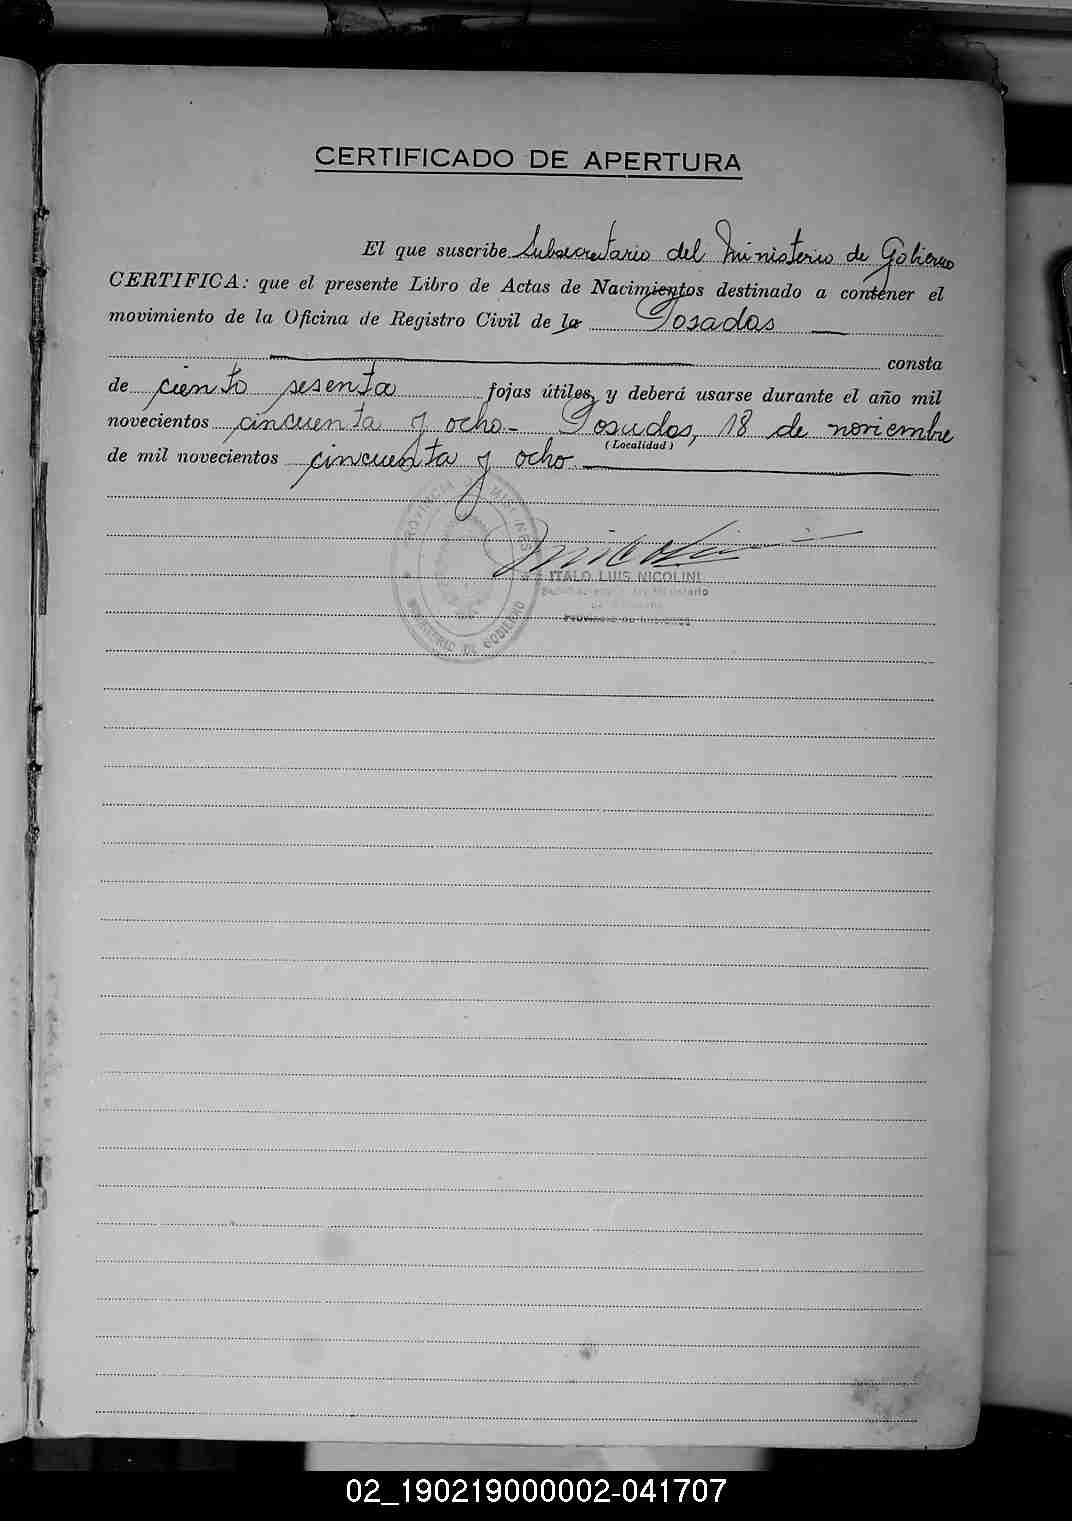 CERTIFICADO DE APERTURA
El que suscribe Subsecretario del Ministerio de Gobierno
CERTIFICA: que el presente Libro de Actas de Nacimientos destinado a contener el
movimiento de la Oficina de Registro Civil de la Posadas
consta
de ciento sesenta fojas útiles, y deberá usarse durante el año mil
novecientos cincuenta y ocho - Posadas, 18 de noviembre
(Localidad)
de mil novecientos cincuenta y ocho
PROVINCIA MISIONES
MINISTERIO DE GOBIERNO
ITALO LUIS NICOLINI
Provincia de Misiones
02_190219000002-041707